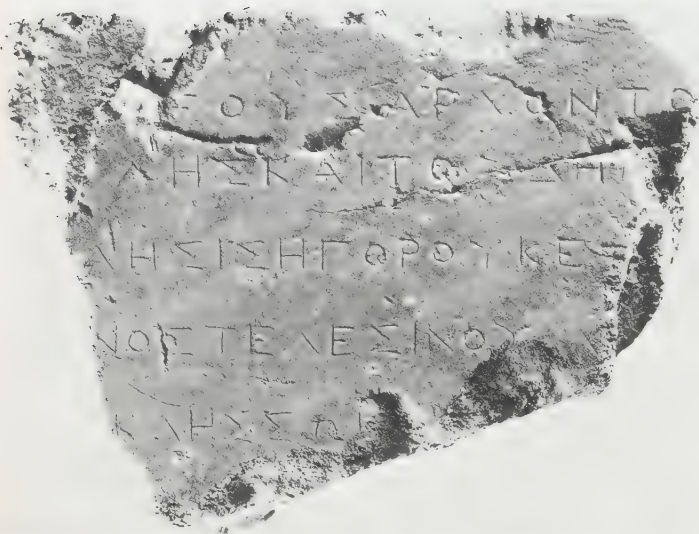 ΕΟΥΣΑΡΧΟΝΤΟ
ΛΗΣΚΑΙΤΩΣΔΗ
ΛΗΣΙΣΗΓΟΡΟΥΚΕΦ
ΝΟΣΤΕΛΕΣΙΝΟΥ
ΚΛΗΣΣΩ